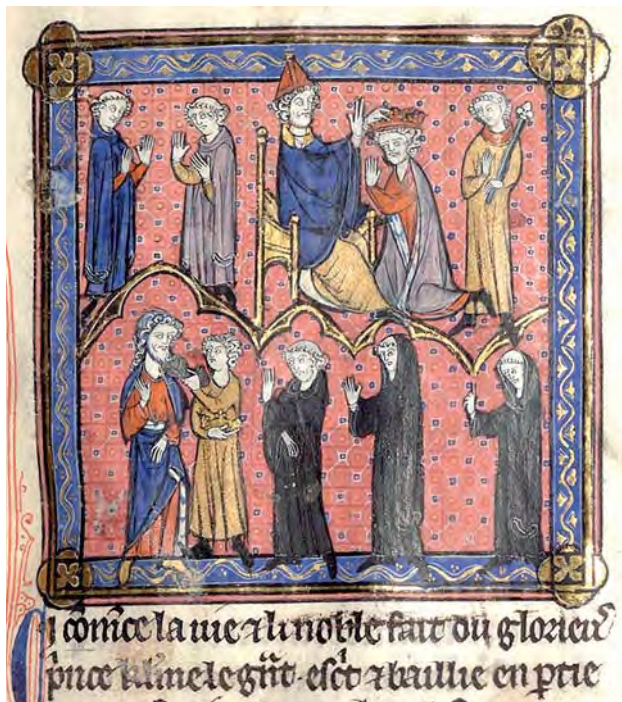 i cōm̄ce la uie ⁊ li noble fait du glorieu᷒
p̄nce kl̄mele gñt · escͥt ⁊ baillie en ptie